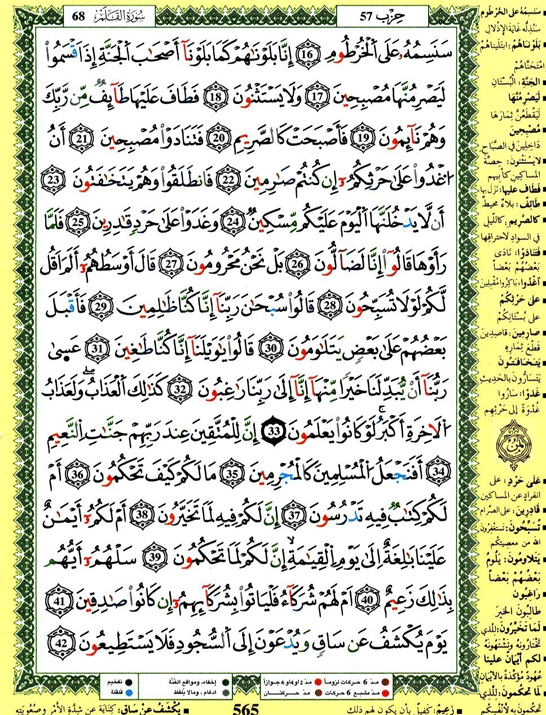 سُورَةُ القَلَمِ 68
حِزْب 57
سَنَسِمُهُۥ عَلَى ٱلْخُرْطُومِ 16 إِنَّا بَلَوْنَٰهُمْ كَمَا بَلَوْنَآ أَصْحَٰبَ ٱلْجَنَّةِ إِذْ أَقْسَمُوا۟
لَيَصْرِمُنَّهَا مُصْبِحِينَ 17 وَلَا يَسْتَثْنُونَ 18 فَطَافَ عَلَيْهَا طَآئِفٌ مِّن رَّبِّكَ
وَهُمْ نَآئِمُونَ 19 فَأَصْبَحَتْ كَٱلصَّرِيمِ 20 فَتَنَادَوْا۟ مُصْبِحِينَ 21 أَنُ
ٱغْدُوا۟ عَلَىٰ حَرْثِكُمُۥٓ إِن كُنتُمْ صَٰرِمِينَ 22 فَٱنطَلَقُوا۟ وَهُمْ يَتَخَٰفَتُونَ 23
أَن لَّا يَدْخُلَنَّهَا ٱلْيَوْمَ عَلَيْكُم مِّسْكِينٌ 24 وَغَدَوْا۟ عَلَىٰ حَرْدٍ قَٰدِرِينَ 25 فَلَمَّا
رَأَوْهَا قَالُوٓا۟ إِنَّا لَضَآلُّونَ 26 بَلْ نَحْنُ مَحْرُومُونَ 27 قَالَ أَوْسَطُهُمُۥٓ أَلَمَ اَقُل
لَّكُمْ لَوْلَا تُسَبِّحُونَ 28 قَالُوا۟ سُبْحَٰنَ رَبِّنَآ إِنَّا كُنَّا ظَٰلِمِينَ 29 فَأَقْبَلَ
بَعْضُهُمْ عَلَىٰ بَعْضٍ يَتَلَٰوَمُونَ 30 قَالُوا۟ يَٰوَيْلَنَآ إِنَّا كُنَّا طَٰغِينَ 31 عَسَىٰ
رَبُّنَآ أَنْ يُّبَدِّلَنَا خَيْرًا مِّنْهَآ إِنَّآ إِلَىٰ رَبِّنَا رَٰغِبُونَ 32 كَذَٰلِكَ ٱلْعَذَابُ وَلَعَذَابُ
ٱلَاخِرَةِ أَكْبَرُ لَوْ كَانُوا۟ يَعْلَمُونَ 33 إِنَّ لِلْمُتَّقِينَ عِندَ رَبِّهِمْ جَنَّٰتِ ٱلنَّعِيمِ
34 أَفَنَجْعَلُ ٱلْمُسْلِمِينَ كَٱلْمُجْرِمِينَ 35 مَا لَكُمْ كَيْفَ تَحْكُمُونَ 36 أَمْ
لَكُمْ كِتَٰبٌ فِيهِ تَدْرُسُونَ 37 إِنَّ لَكُمْ فِيهِ لَمَا تَخَيَّرُونَ 38 أَمْ لَكُمُۥٓ أَيْمَٰنٌ
عَلَيْنَا بَٰلِغَةٌ اِلَىٰ يَوْمِ ٱلْقِيَٰمَةِ إِنَّ لَكُمْ لَمَا تَحْكُمُونَ 39 سَلْهُمُۥٓ أَيُّهُم
بِذَٰلِكَ زَعِيمٌ 40 أَمْ لَهُمْ شُرَكَآءُ فَلْيَاتُوا۟ بِشُرَكَآئِهِمُۥٓ إِن كَانُوا۟ صَٰدِقِينَ 41
يَوْمَ يُكْشَفُ عَن سَاقٍ وَيُدْعَوْنَ إِلَى ٱلسُّجُودِ فَلَا يَسْتَطِيعُونَ 42
سنسمه على الخرطوم
سنذله غاية الإذلال
بلوناهم: ابتليناهم
امتحناهم
الجنة: البستان
ليصرمنها
ليقطعن ثمارها
مصبحين
داخلين في الصباح
لا يستثنون: حصة
المساكين كأبيهم
فطاف عليها: نزل بها
طائف: بلاء محيط
كالصريم: كالليل
في السواد لاحتراقها
فتنادوا: نادى
بعضهم بعضا
اغدوا: باكروا مقبلين
على حرثكم
على بستانكم
صارمين: قاصدين
قطع ثماره
يتخافتون
يتسارّون بالحديث
غدوا: ساروا
غدوة إلى حرثهم
على حرد: على
انفراد عن المساكين
قادرين: على الصرام
تسبحون: تستغفرون
الله من معصيتكم
يتلاومون: يلوم
بعضهم بعضا
راغبون
طالبون الخير
لما تخيرون: للذي
تختارونه وتشتهونه
لكم أيمان علينا
عهود مؤكدة بالأيمان
لما تحكمون: للذي
تحكمون به لأنفسكم
مدّ 6 حركات لزوماً
مدّ 2 أو 4 أو 6 جوازاً
إخفاء، ومواقع الغنّة
تفخيم
مدّ مشبع 6 حركات
مدّ حركتان
إدغام، وما لا يُلفظ
قلقلة
زعيم: كفيل بأن يكون لهم ذلك
565
يكشف عن ساق: كناية عن شدة الأمر وصعوبته